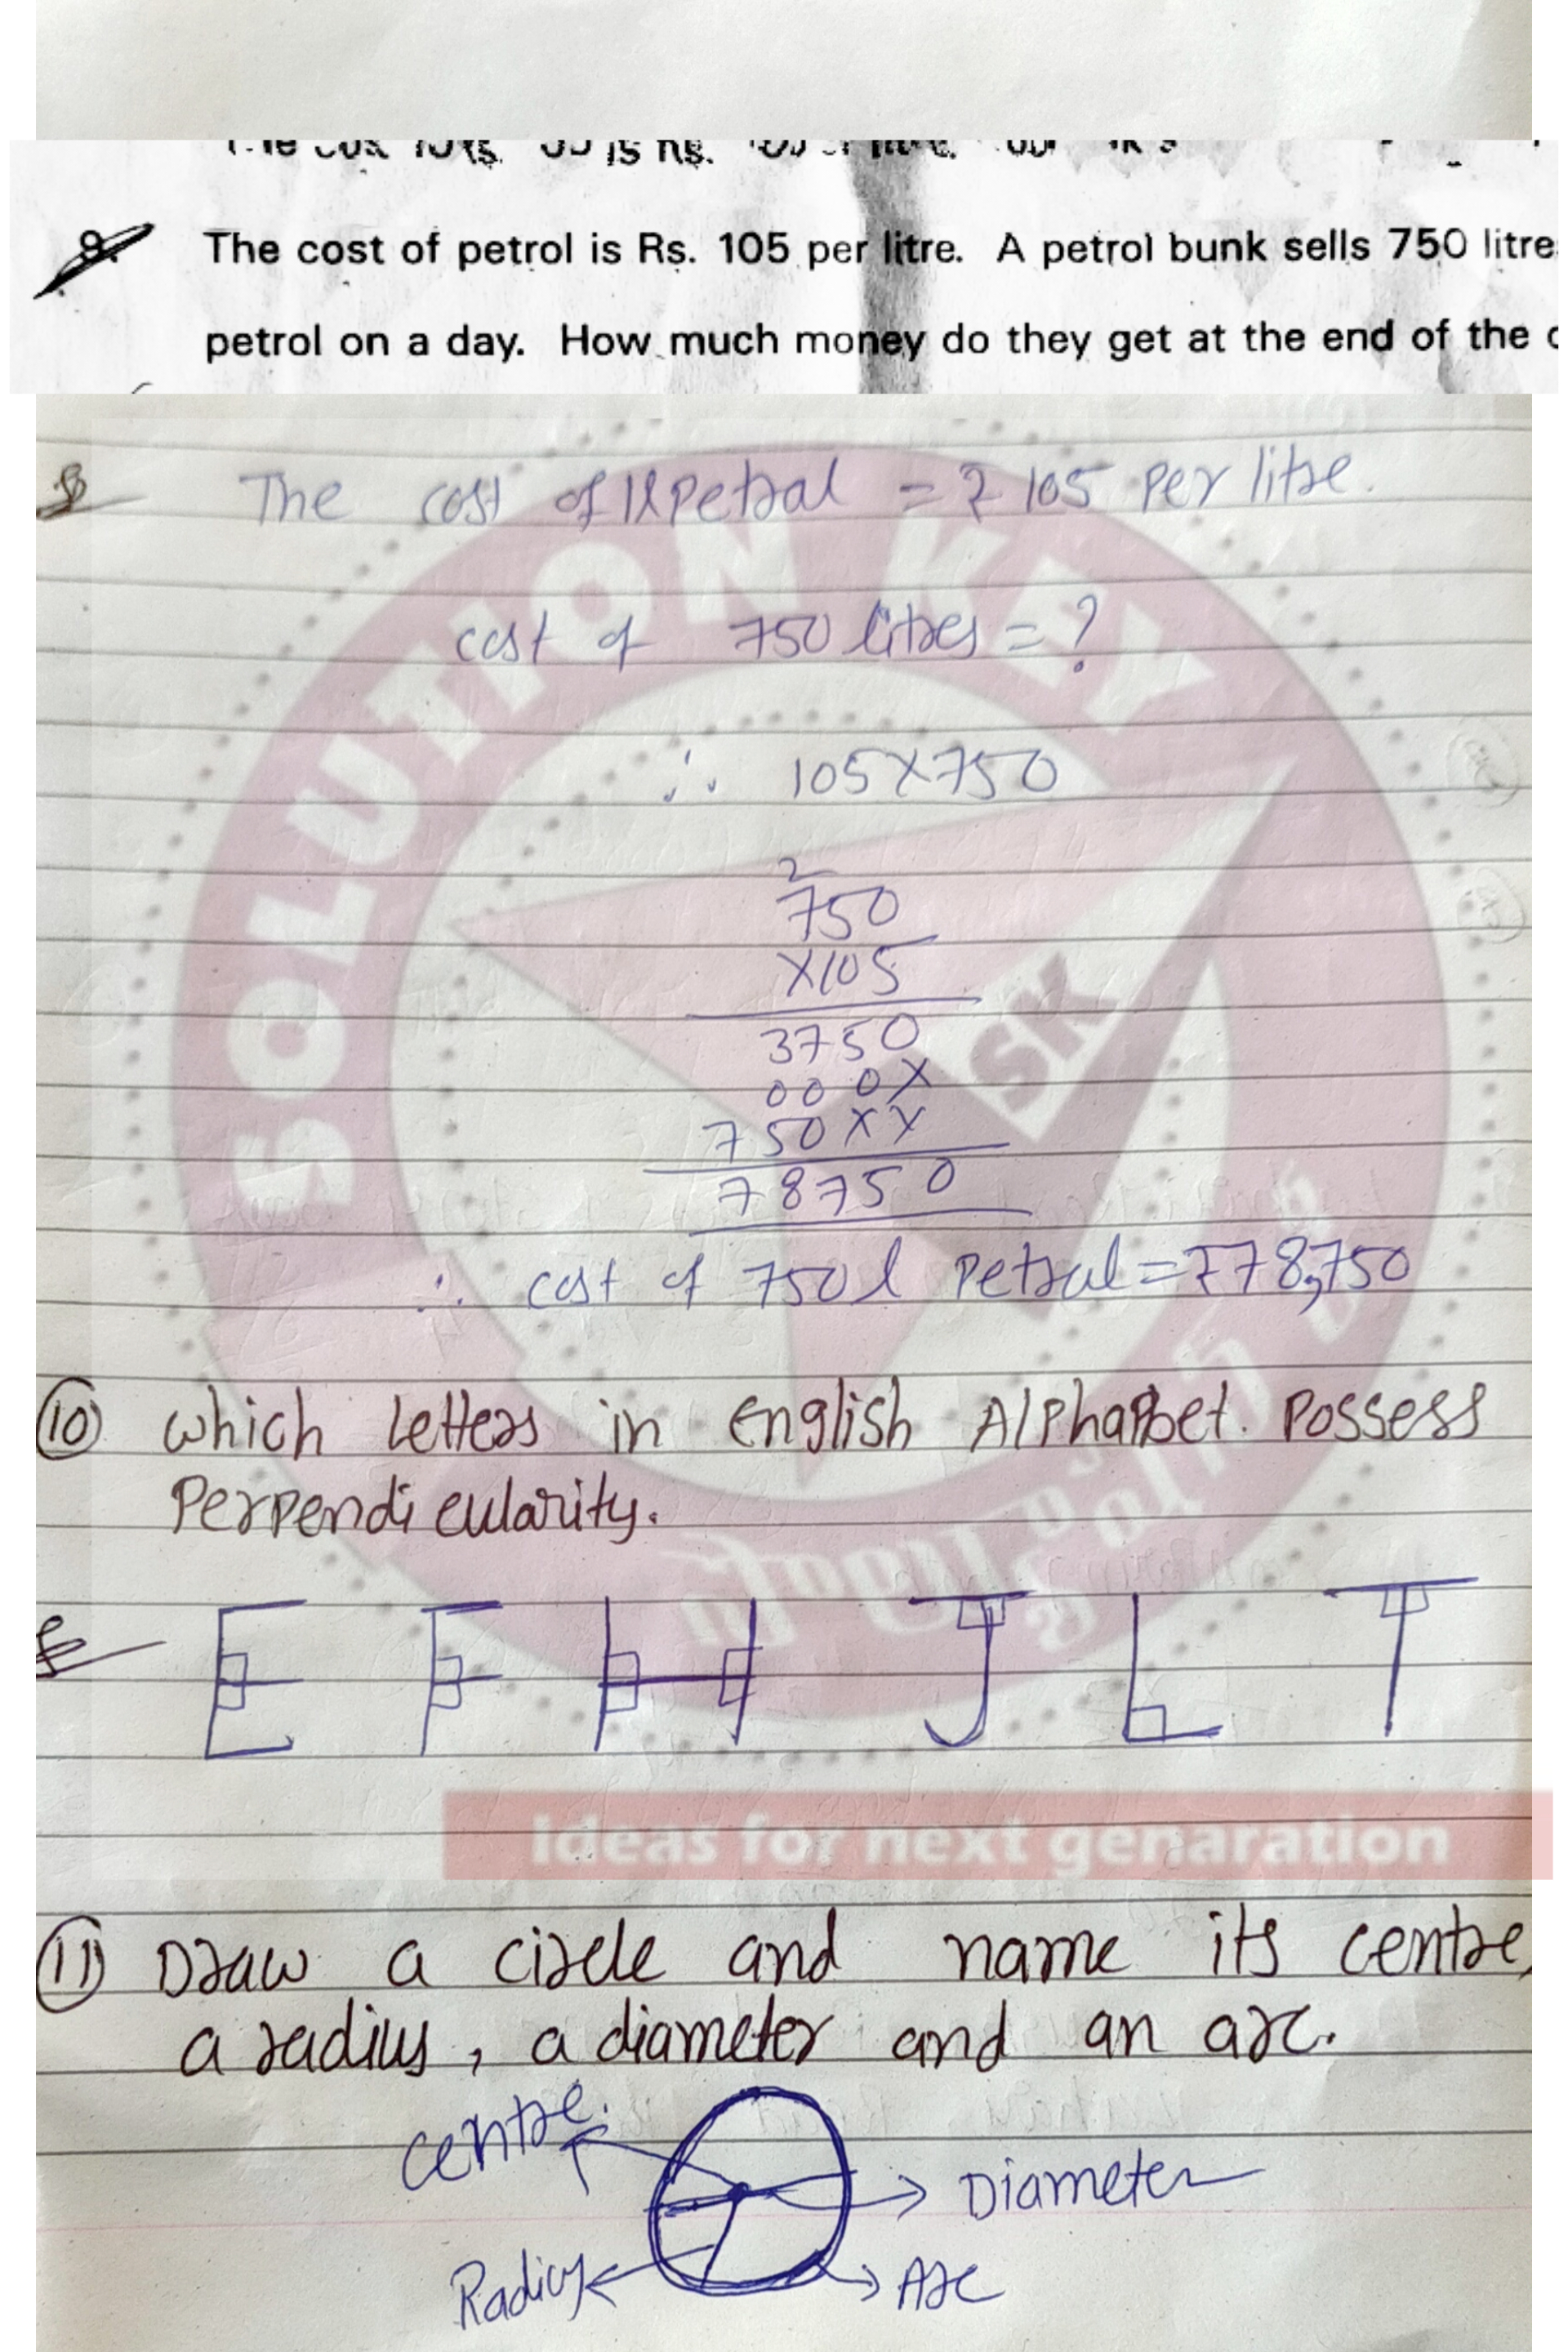 9. The cost of petrol is Rs. 105 per litre. A petrol bunk sells 750 litre
petrol on a day. How much money do they get at the end of the
The cost of 1l Petral = ₹ 105 Per litre.
cost of 750 litres = ?
∴ 105X750
2
750
X105
3750
000X
750XX
78750
∴ cost of 750l Petral = ₹78,750
⑩ which letters in English Alphabet. Possess
Perpendicularity.
E F H J L T
Ideas for next genaration
⑪ Draw a circle and name its centre,
a radius, a diameter and an arc.
centre.
Diameter
Radius
Arc
SOLUTION KEY
SK